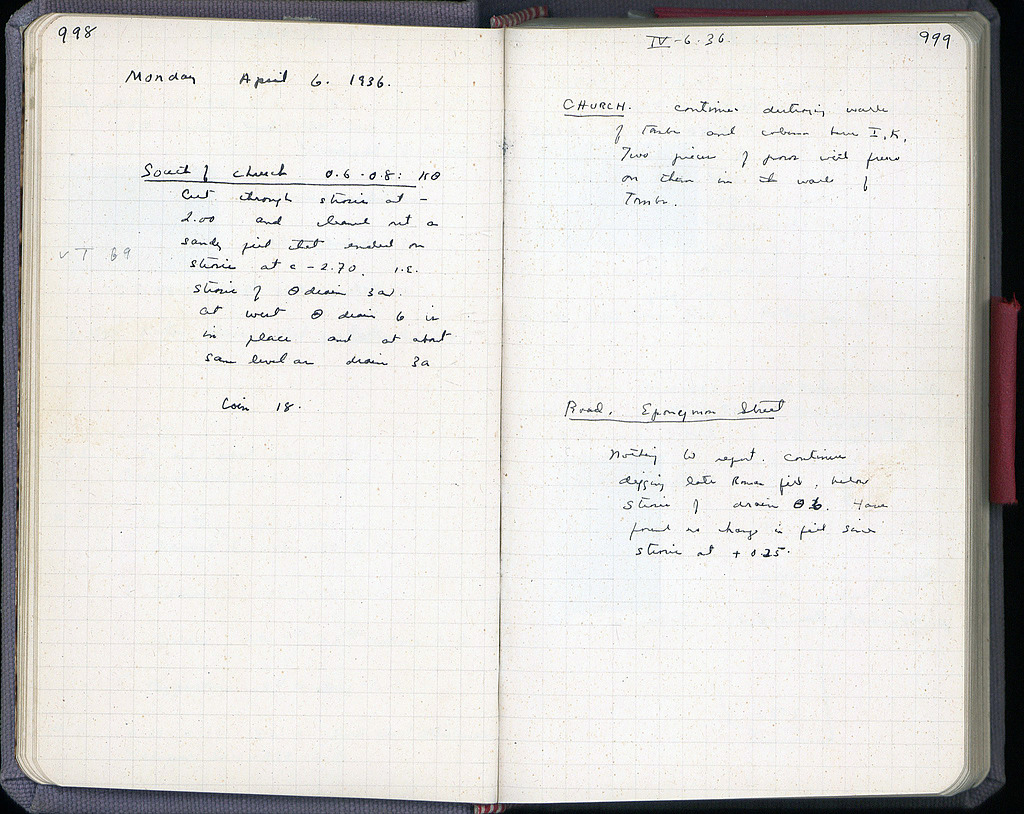 998
Monday April 6. 1936.
South of church 0.6-0.8: ΚΘ
Cut through strosis at -
2.00 and cleared out a
sandy fill that ended on
strosis at c -2.70. i.e.
strosis of Θ drain 3a.
at west Θ drain 6 is
in place and at about
same level as drain 3a
VT 69
Coin 18.
IV-6-36.
999
CHURCH. Continue destroying walls
of Tombs and column base I, K.
Two pieces of poros with
on them in the walls of
Tombs.
Road, Eponymon Street
Nothing to report. Continue
digging late Roman fill, below
strosis of drain Θ 6. Have
found no change in fill since
strosis at + 0.25.